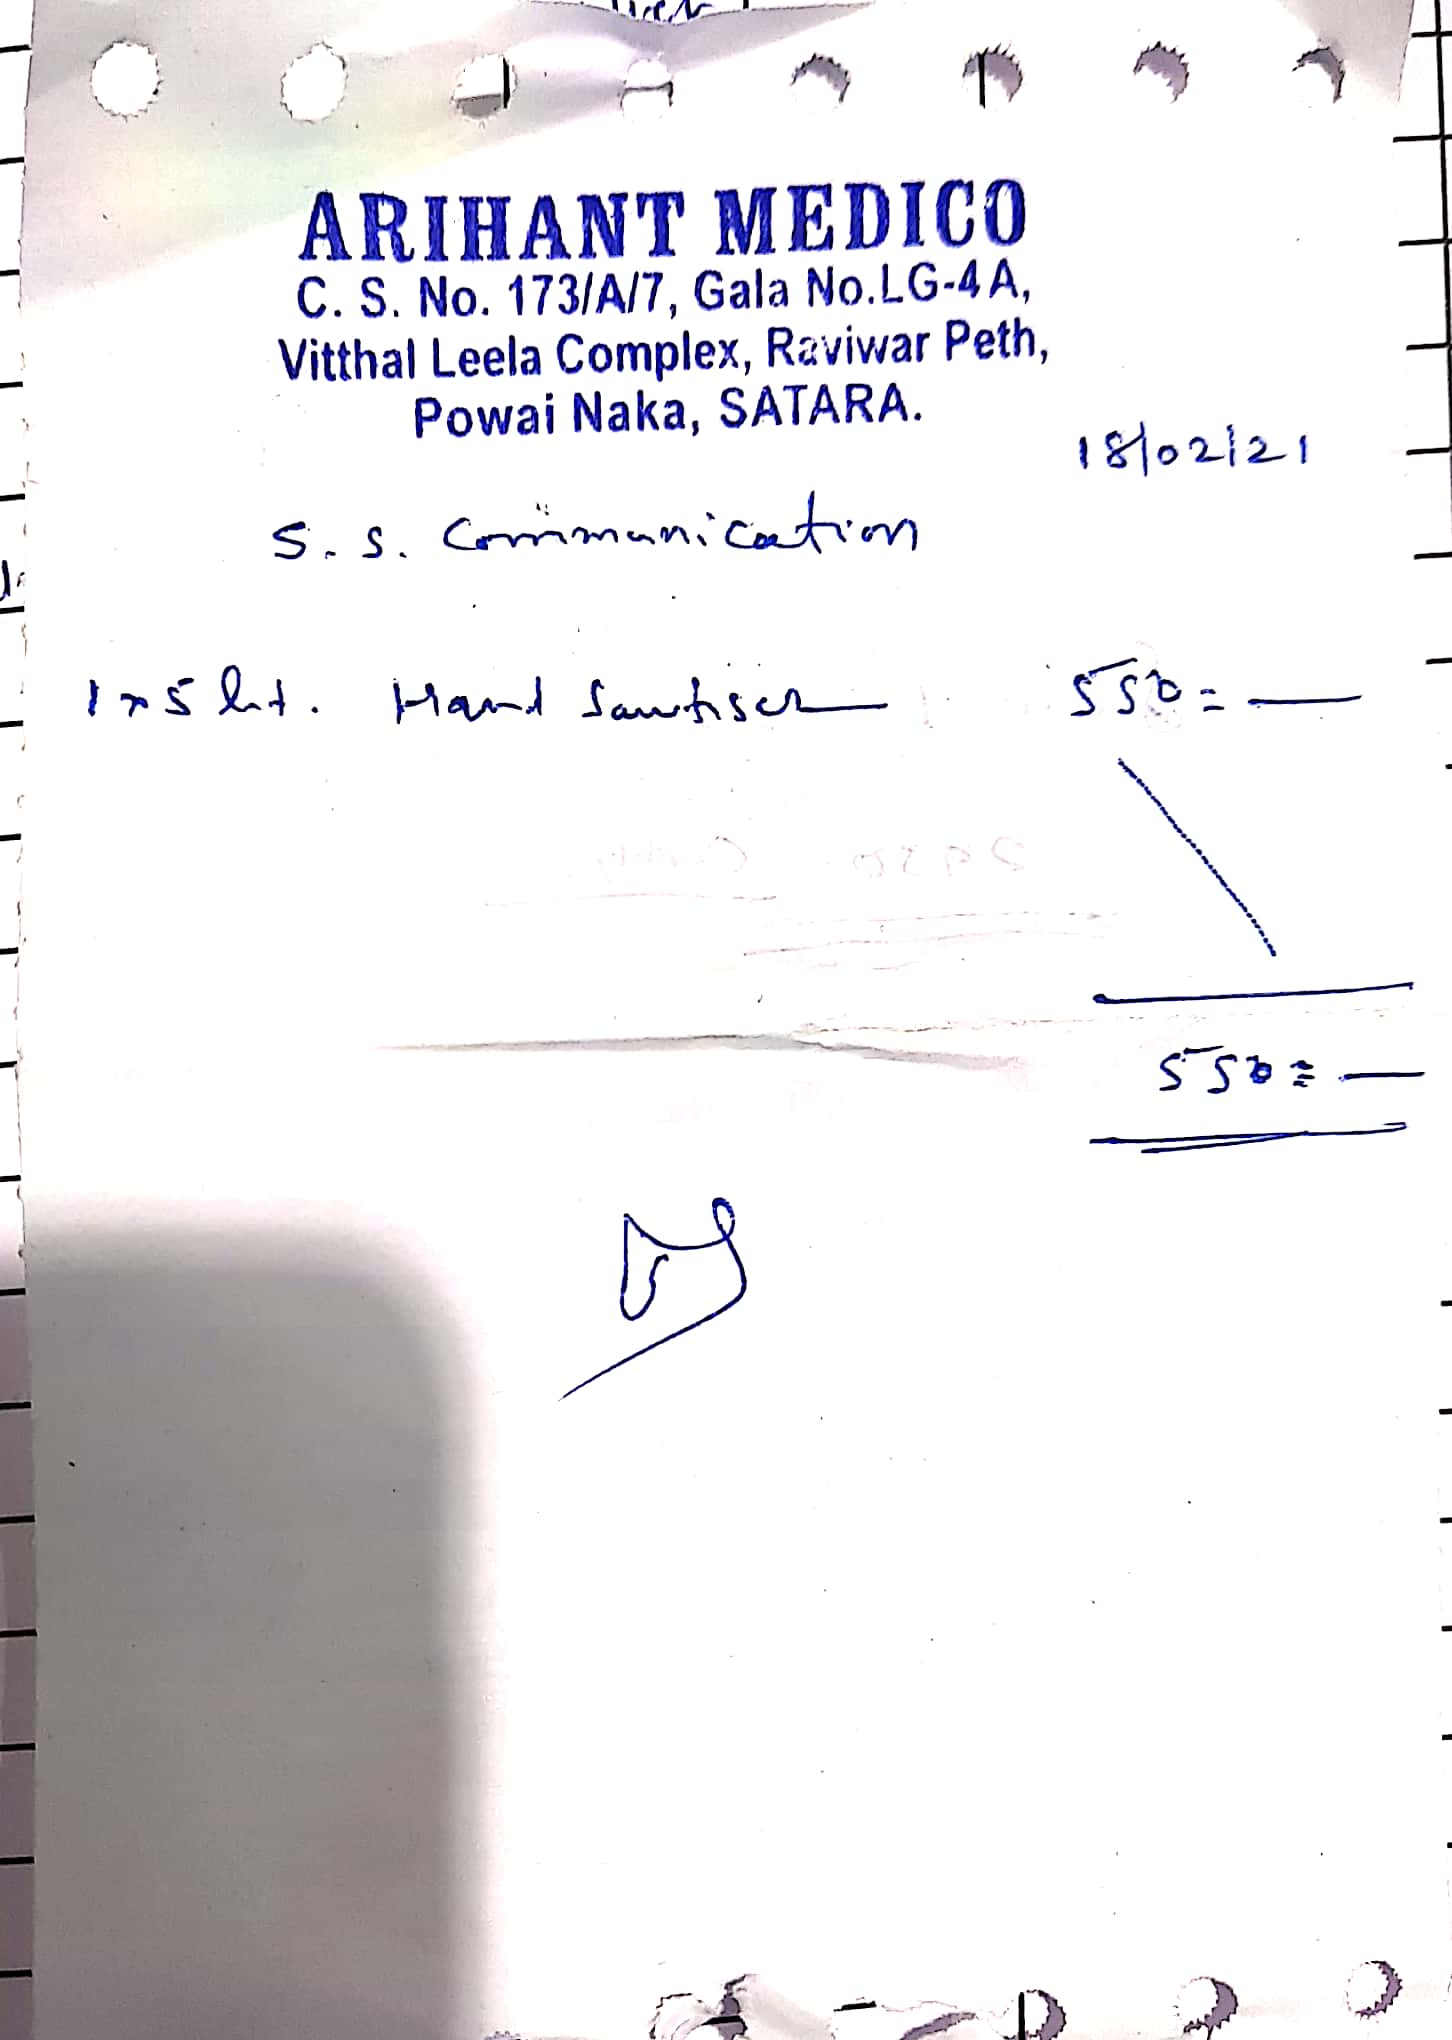 ARIHANT MEDICO
C. S. No. 173/A/7, Gala No.LG-4A,
Vitthal Leela Complex, Raviwar Peth,
Powai Naka, SATARA.
18/02/21
S. S. Communication
1 x 5 lit. Hand Sanitiser 550=—
550=—